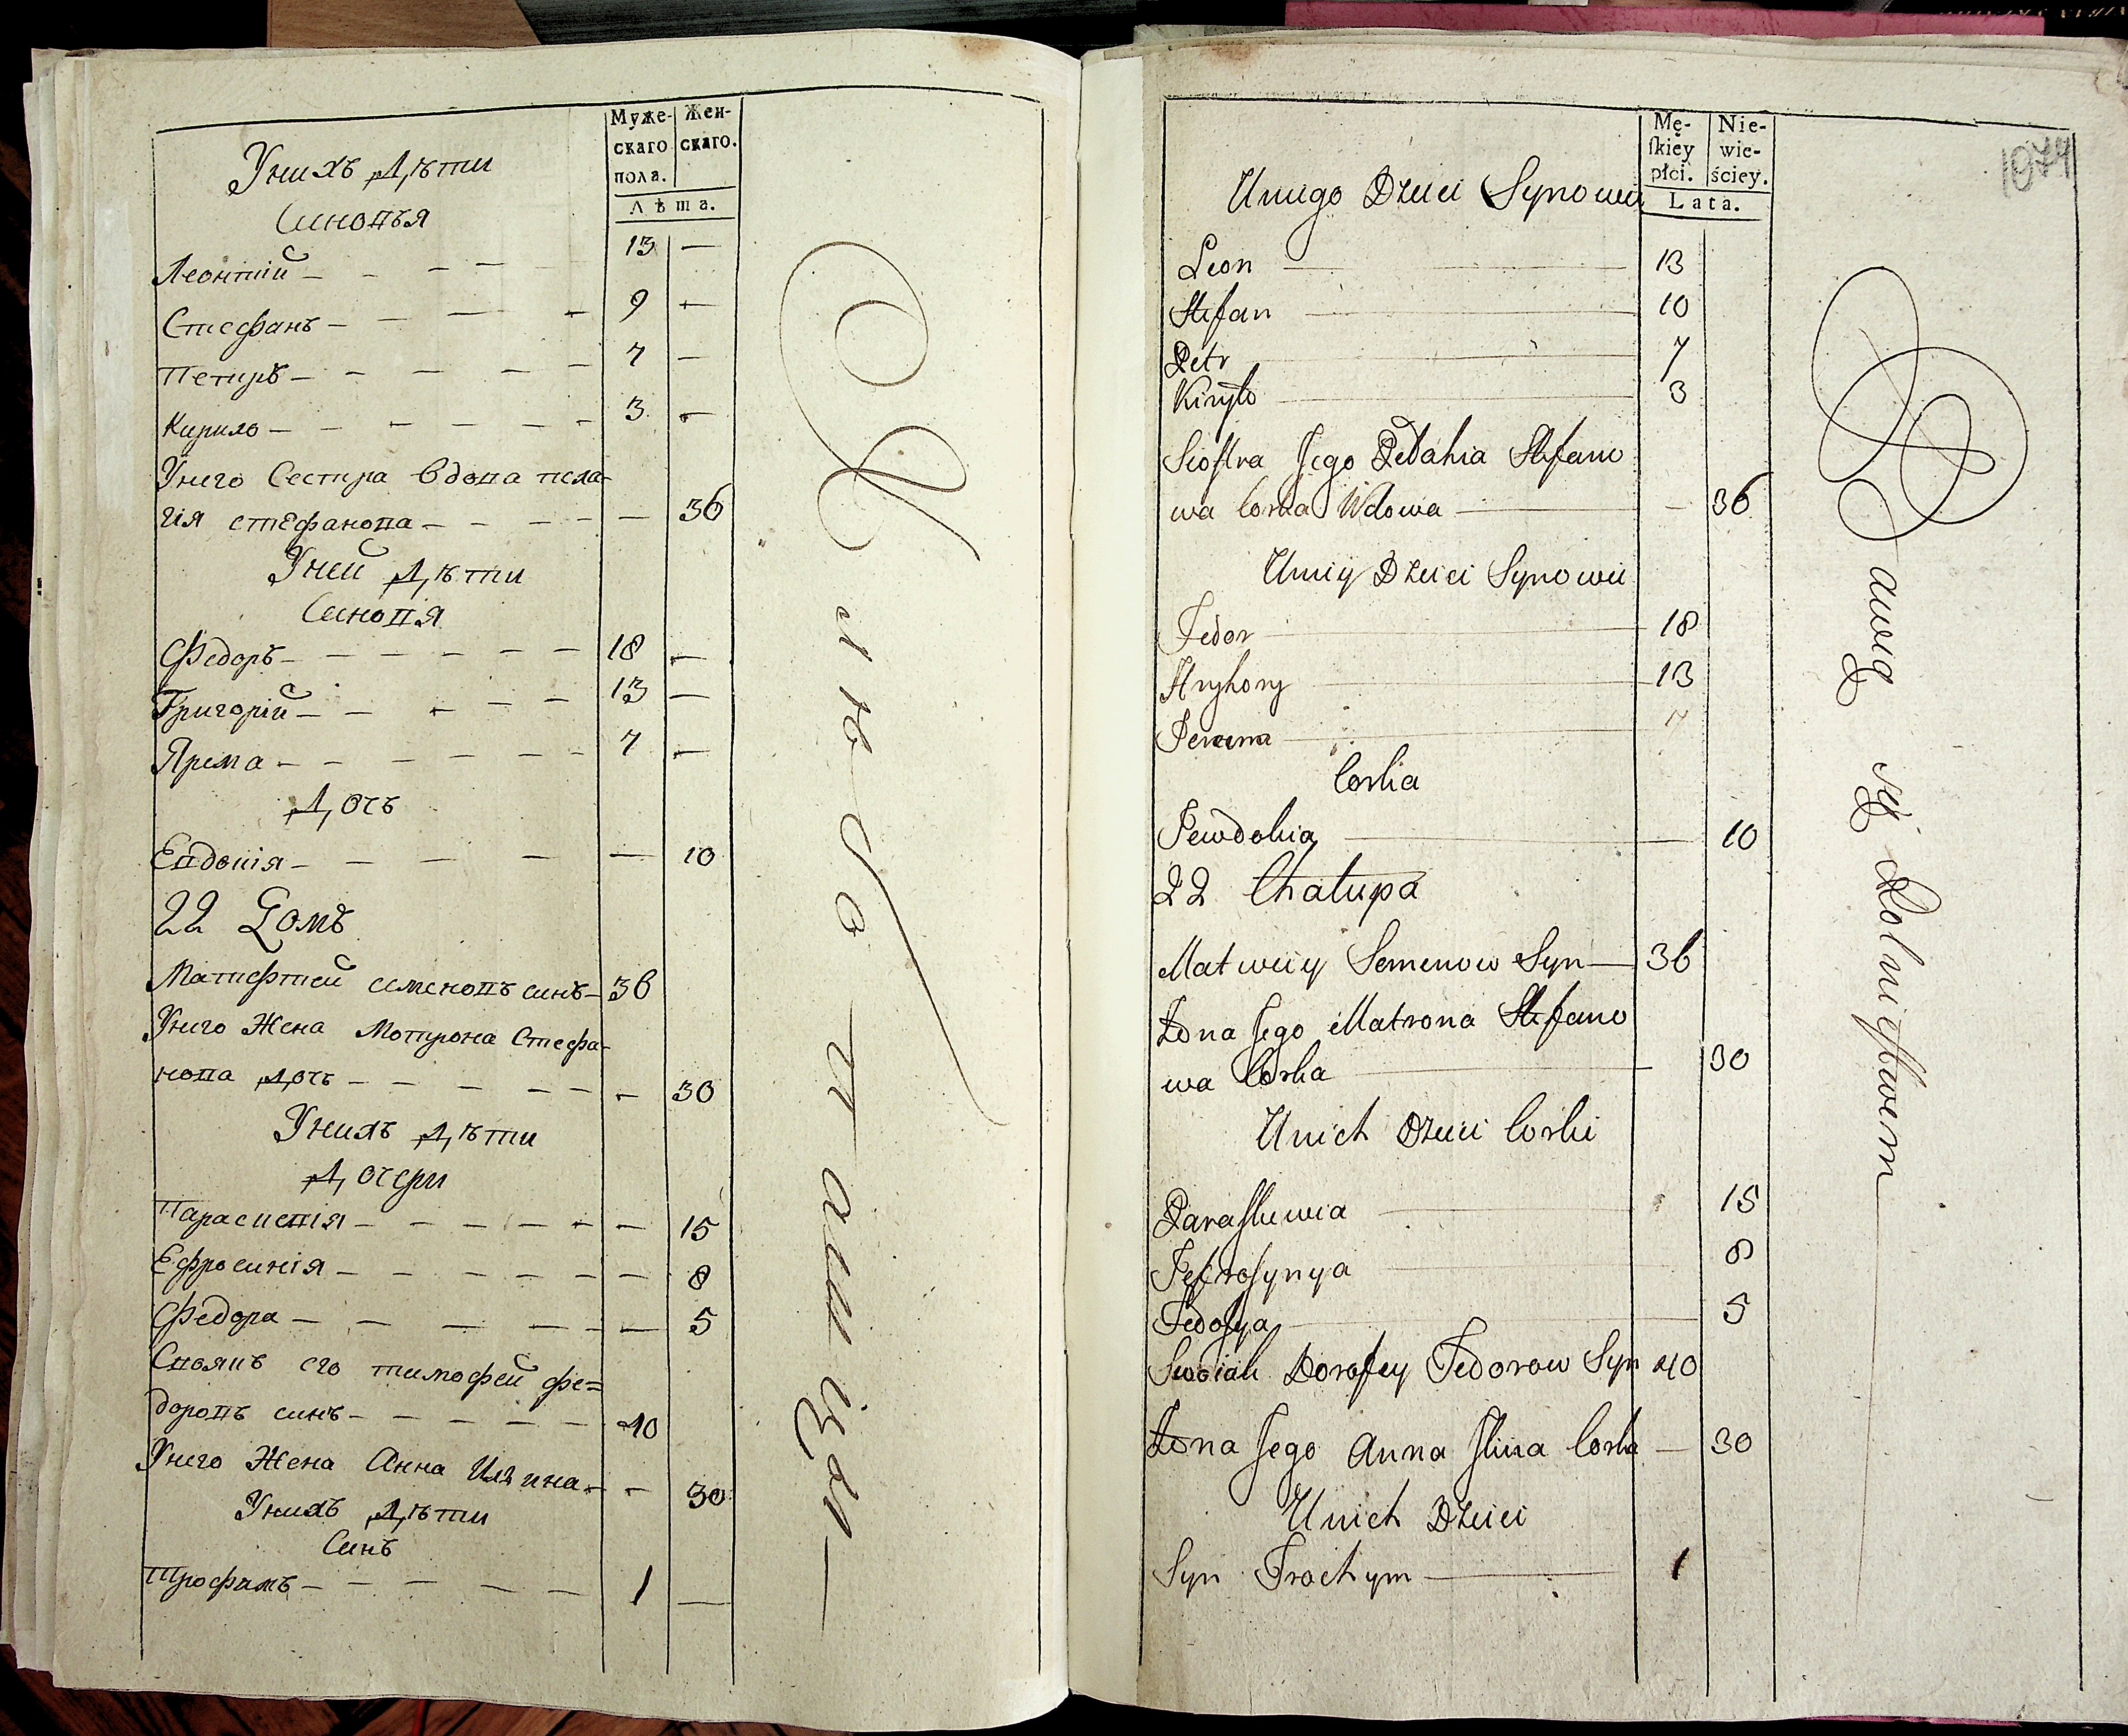 Муже-
скаго
пола.
Жен-
скаго.
Лѣта.
Унихъ Дѣти
Синовья
Леонтій 13 —
Стефанъ 9 —
Петръ 7 —
Кирило 3 —
Унего Сестра вдова пела-
гія стефанова — 36
Уней Дѣти
Синовя
Федоръ 18 —
Григорій 13 —
Ярема 7 —
Дочь
Евдокія — 10
22 Домъ
Матфтей семеновъ синъ 36
Унего Жена Мотрона Стефа-
нова дочь — 30
Унихъ Дѣти
Дочери
Параскевія — 15
Ефросинія — 8
Федора — 5
Своякъ его тимофей фе=
доровъ синъ 40
Унего Жена Анна Илина — 30
Унихъ Дѣти
Синъ
Трофимъ 1 —
Mę-
skiey
płci.
Nie-
wie-
ściey.
Lata.
1074
Uniego Dzieci Synowie
Leon 13
Stefan 10
Petr 7
Kiryło 3
Siostra Jego Pełahia Stefano
wa Corka Wdowa — 36
Uniey Dzieci Synowie
Fedor 18
Hryhory 13
Jerema 7
Corka
Jewdokia — 10
22 Chałupa
Matwiey Semenow Syn 36
Żona Jego Matrona Stefano
wa Corka — 30
Unich Dzieci Corki
Paraskiewia 15
Jefrosynya 8
Fedosya 5
Swoiak Dorofey Fedorow Syn 40
Żona Jego Anna Ilina Corka — 30
Unich Dzieci
Syn Trochym 1
bawią się Rolnictwem